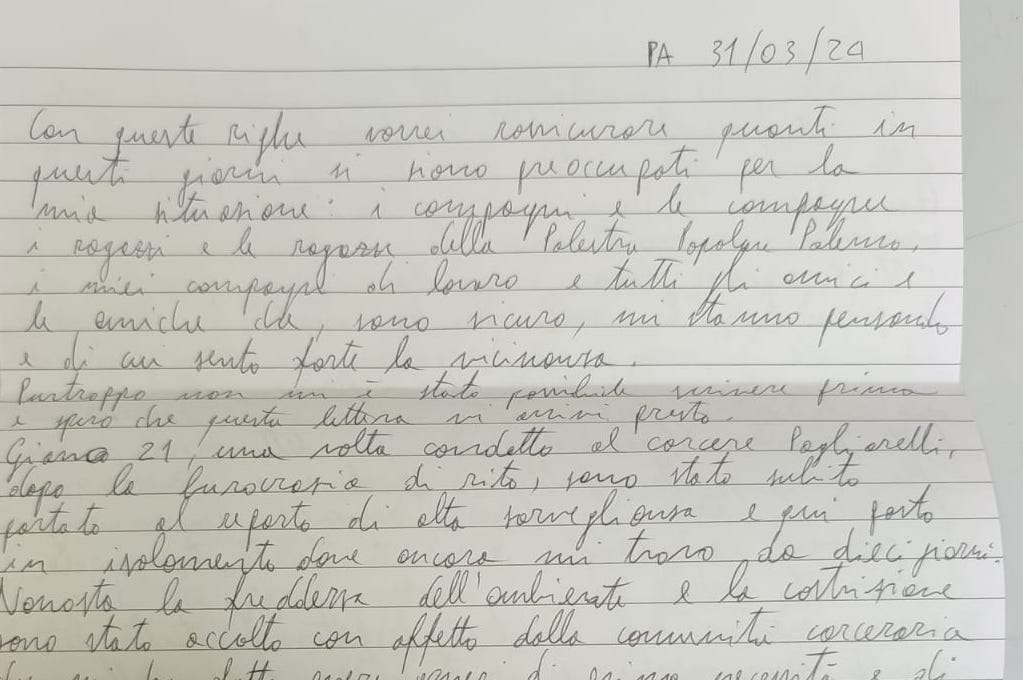 PA 31/03/24
Con queste righe vorrei rassicurare quanti in
questi giorni si siono preoccupati per la
mia situazione: i compagni e le compagne
i ragazzi e le ragazze della Palestra Popolare Palermo,
i miei compagni di lavoro e tutti gli amici e
le amiche che, sono sicuro, mi stanno pensando
e di cui sento forte la vicinanza.
Purtroppo non mi è stato possibile scrivere prima
e spero che questa lettera vi arrivi presto.
Giorno 21, una volta condotto al carcere Pagliarelli,
dopo la burocrazia di rito, sono stato subito
portato al reparto di alta sorveglianza e qui posto
in isolamento dove ancora mi trovo da dieci giorni.
Nonosta la freddezza dell'ambienate e la costrizione
sono stato accolto con affetto dalla comunità carceraria
che mi ha di prima necessità e di